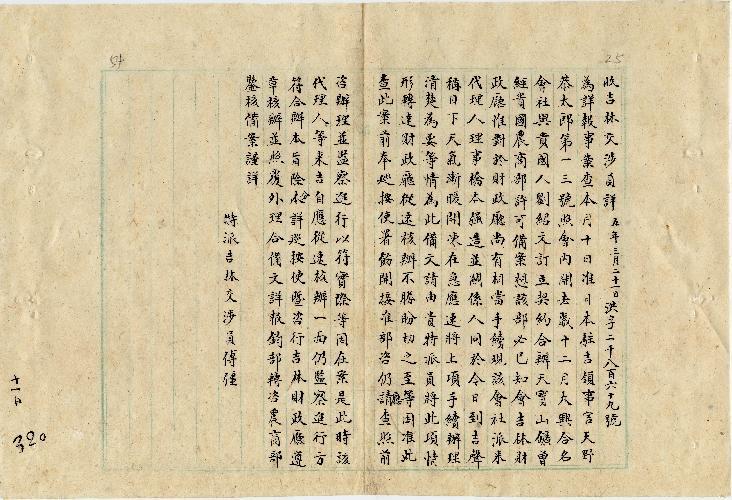 25
收吉林交涉員詳 五年三月二十一日 洪字二千八百六十九號
為詳報事案查本月十日准日本駐吉領事官天野
恭太郎第一三號照會內開去歲十二月大興合名
會社與貴國人劉紹文訂立契約合辦天寶山鑛曾
經貴國農商部許可備案想該部必已知會吉林財
政廳惟對於財政廳尚有相當手續現該會社派來
代理人理事橋本龜造並關係人同於今日到吉聲
稱目下天氣漸暖開凍在急應速將上項手續辦理
清楚為要等情為此備文請由貴特派員將此項情
形轉達財政廳從速核辦不勝盼切之至等因准此
查此案前奉巡按使署飭開接准部咨仍應請查照前
54
咨辦理並監察進行以符實際等因在案是此時該
代理人等來吉自應從速核辦一面仍監察進行方
符合辦本旨除分詳巡按使暨咨行吉林財政廳遵
章核辦並照覆外理合備文詳報鈞部轉咨農商部
鑒核備案謹詳
特派吉林交涉員傅疆
十一日
320